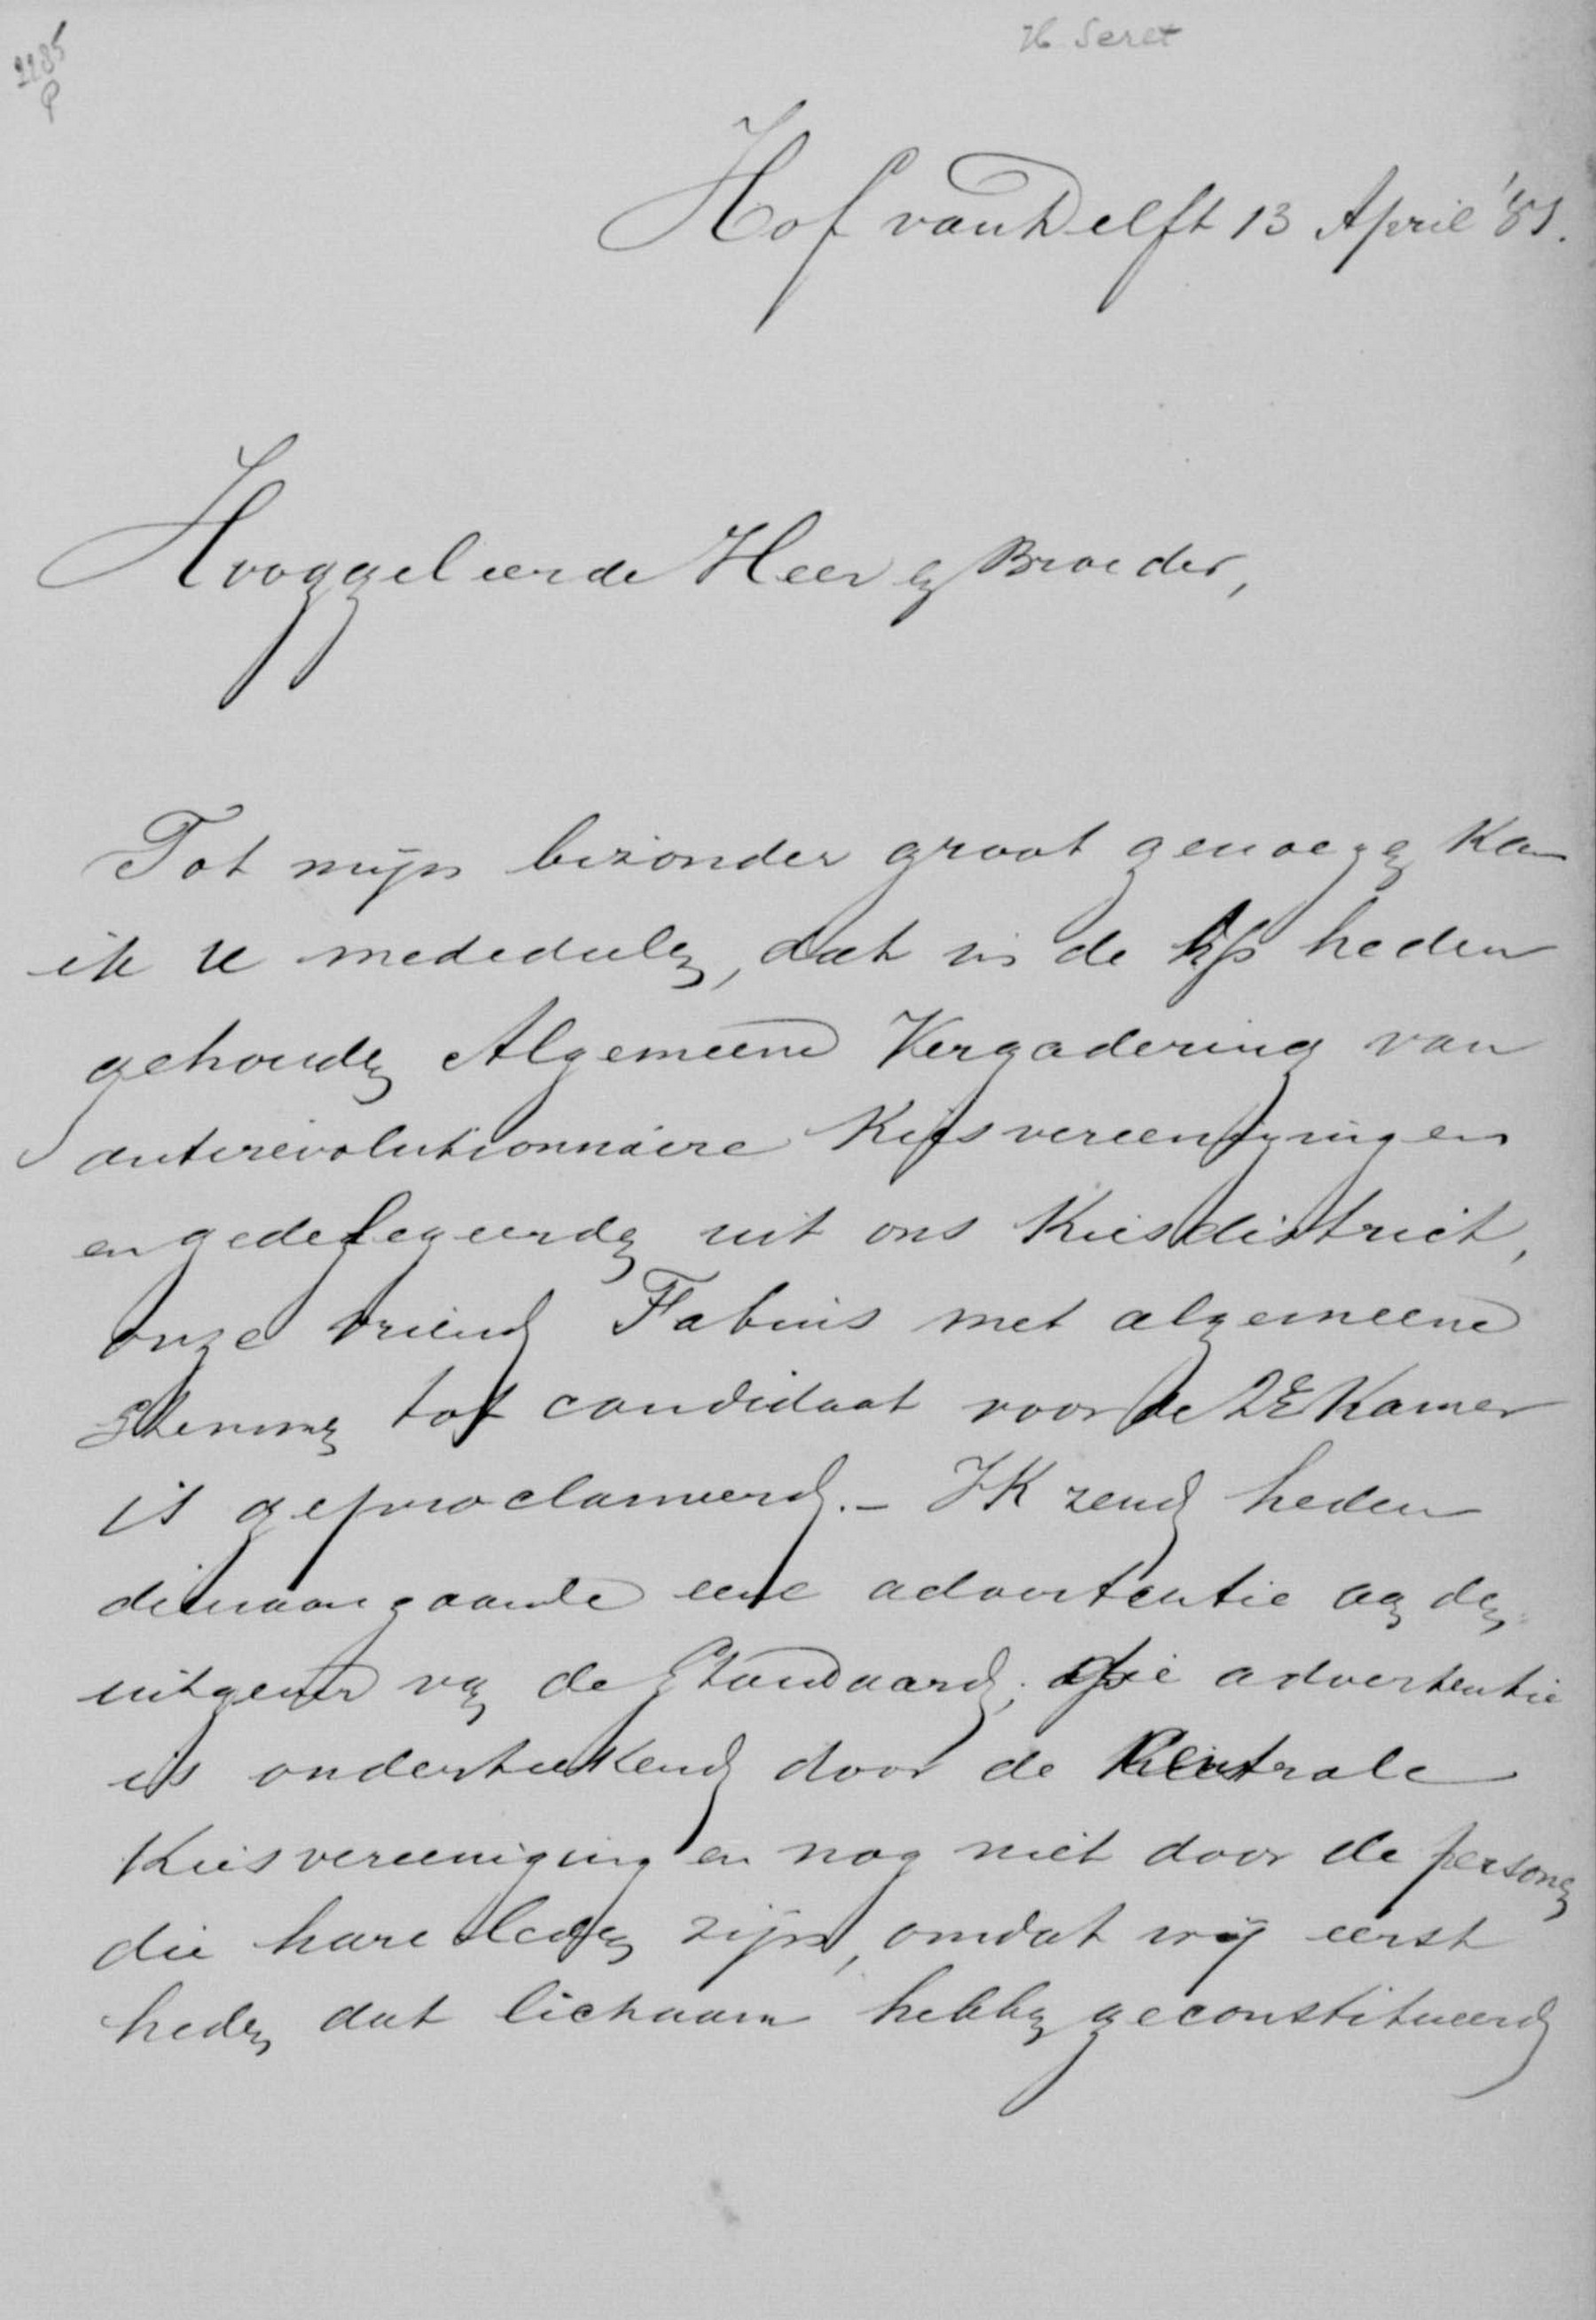 2285
P
H Seret
Hof van Delft 13 April '81.
Hooggeleerde Heer en Broeder,
Tot mijn bizonder groot genoegen kan
ik U mededeelen, dat in de heden
gehouden Algemeene Vergadering van
antirevolutionnaire Kiesvereenigingen
en gedelegeerden uit ons Kiesdistrict,
onze vriend Fabius met algemeene
stemmen tot candidaat voor de 2E Kamer
is geproclameerd. - Ik zend heden
dienaangaande eene advertentie aan den
uitgever van de Standaard; die advertentie
is onderteekend door de Centrale
Kiesvereeniging en nog niet door de personen
die hare leden zijn, omdat wij eerst
heden dat lichaam hebben geconstitueerd